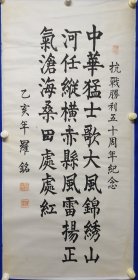 抗戰勝利五十周年紀念
中華猛士歌大風錦綉山
河任縱橫赤縣風雷揚正
氣滄海桑田處處紅
乙亥年羅銘